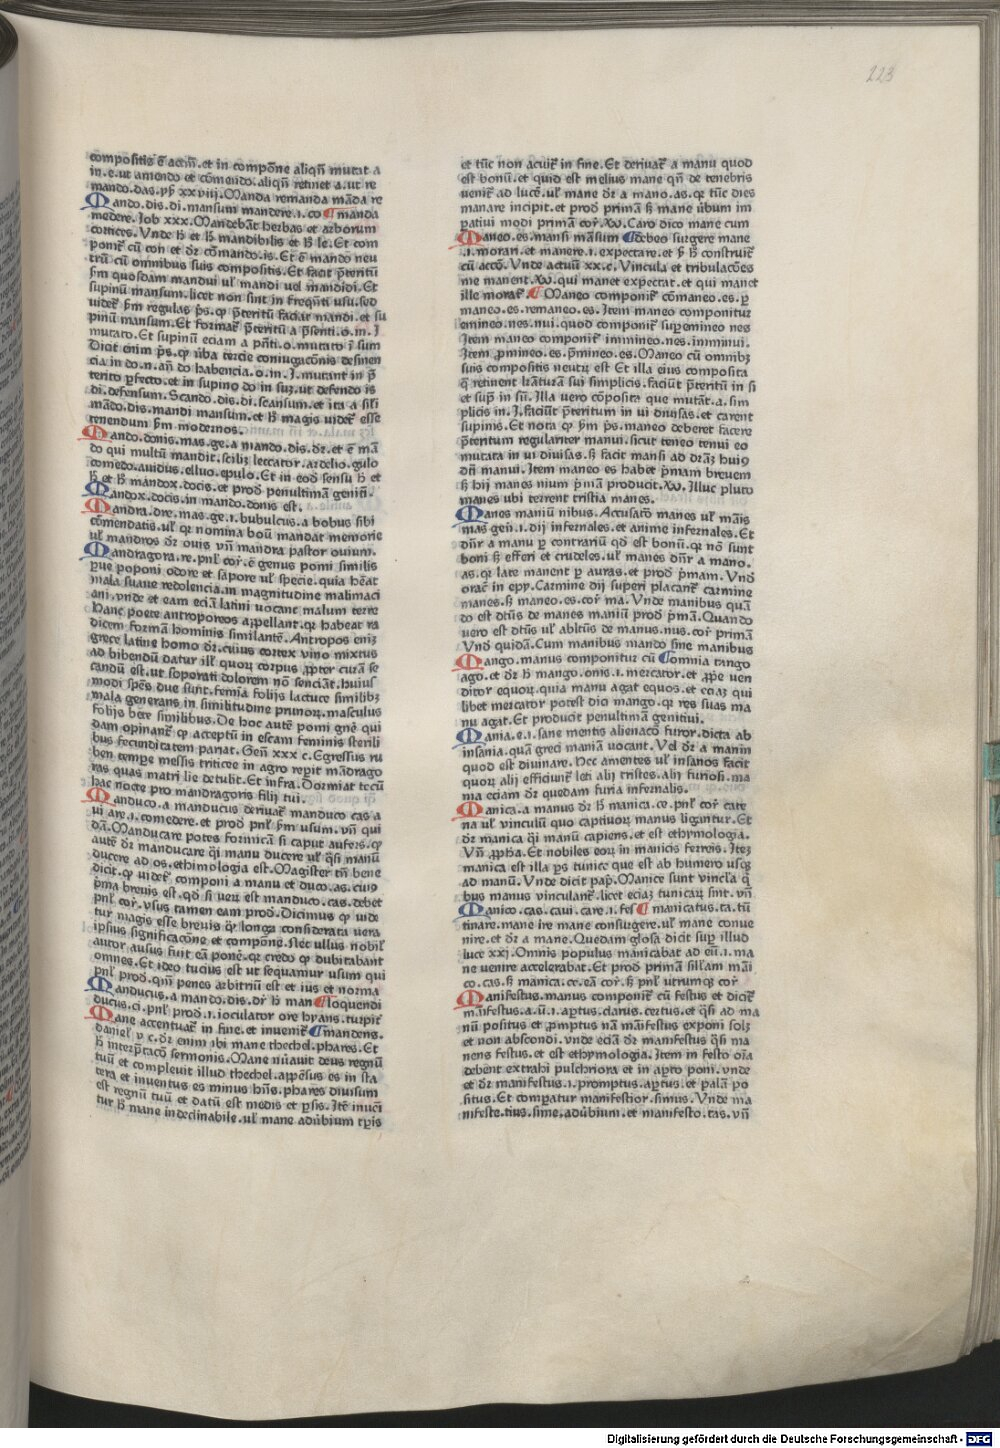 223
compositiẽ ẽ actiṽ. et in compõne aliqñ mutat a
in. e. ut amendo et cõmendo. aliqñ retinet a. ut re
mando. das. pẜ xxviij. Manda remanda mãda re
Mando. dis. di. mansum mandere. i. co ¶ manda
medere. Job xxx. Mandebãt herbas et arborum
cortices. Vnde h̃ et h̃ mandibilis et h̃ le. Et com
ponit̃ cũ con et dr̃ cõmando. is. Et ẽ mando neu
trũ cũ omnibus suis compositis. Et facit p̃teritũ
ẜm quosdam mandui ul̃ mandi uel mandidi. Et
supinũ mansum. licet non sint in freq̃nti usu. sed
uidet̃ ẜm regulas p̃s. ꝙ p̃teritũ faciat mandi. et su
pinũ mansum. Et format̃ p̃teritũ a p̃senti. o. in. I
mutato. Et supinũ eciam a pñti. o. mutato ĩ sum
Dicit enim p̃s. ꝙ ũba tercie coniugacõnis desinen
cia in do. n. añ do habencia. o. in. I. mutant in p̃
terito ꝑfecto. et in supino do in suʒ. ut defendo is
di. defensum. Scando. dis. di. scansum. et ita a sil̃i
mãdo. dis. mandi mansum. et h̃ magis uidet̃ esse
tenendum ẜm modernos.
Mando. donis. mas. ge. a mando. dis. dr̃. et ẽ mã
do qui multũ mandit. scilicʒ leccator. ardelio. gulo
comedo. auidus. elluo. epulo. Et in eod̃ sensu h̃ et
h̃ et h̃ mandox. docis. et prod̃ penultimã geniñ.
Mandox. docis. in mando. donis est.
Mandra. dre. mas. ge. i. bubulcus. a bobus sibi
cõmendatis. ul̃ qꝛ nomina boũ mandat memorie
ul̃ mandros dr̃ ouis vñ mandra pastor ouium.
Mandragora. re. pnl̃ cor̃. ẽ genus pomi similis
p̃ue poponi odore et sapore ul̃ specie. quia hẽat
mala suaue redolencia. in magnitudine malimaci
ani. vnde et eam eciã latini uocant malum terre
Hanc poete antroporeos appellant. qꝛ habeat ra
dicem formã hominis similantẽ. Antropos eniʒ
grece latine homo dr̃. cuius cortex vino mixtus
ad bibendũ datur ill̃ quoꝝ corpus ꝓpter curã se
candũ est. ut soporati dolorem nõ senciãt. huius
modi spẽs due sunt. femĩa folijs lactuce similibʒ
mala generans in similitudine prunoꝝ. masculus
folijs bete similibus. De hoc autẽ pomi gñe qui
dam opinant̃ ꝙ acceptũ in escam feminis sterili
bus fecunditatem pariat. Geñ xxx c. Egressus ru
ben tempe messis triticee in agro repit mãdrago
ras quas matri lie detulit. Et infra. Dormiat tecũ
hac nocte pro mandragoris filij tui.
Manduco. a manducus deriuat̃ manduco cas a
ui are. i. comedere. et prod̃ pnl̃ ẜm usum. vñ qui
dã. Manducare potes formicã si caput aufers. ꝙ
autẽ dr̃ manducare q̃i manu ducere ul̃ q̃si manũ
ducere ad os. ethimologia est. Magister tñ bene
dicit. ꝙ uidet̃ componi a manu et duco. as. cui9
p̃ma breuis est. qd̃ si uerũ est manduco. cas. debet
pnl̃ cor̃. vsus tamen eam prod̃. Dicimus ꝙ uide
tur magis esse breuis q̃ꝫ longa considerata uera
ipsius significacõne et compõne. Nec ullus nobil̃
autor ausus fuit eã ponẽ. qꝛ credo ꝙ dubitabant
omnes. Et ideo tucius est ut sequamur usum qui
pnl̃ prod̃. qm̃ penes arbitriũ est et ius et norma
Manducus. a mando. dis. dr̃ h̃ man ¶ loquendi
ducus. ci. pnl̃ prod̃. i. ioculator ore hyans. turpit̃
Mane accentuat̃ in fine. et inuenit̃ ¶ mandens.
daniel̃ v c. dr̃ enim ibi mane thechel. phares. Et
h̃ interp̃taco sermonis. Mane nũauit deus regnũ
tuũ et compleuit illud thechel. appẽsus es in sta
tera et inuentus es minus hñs. phares diuisum
est regnũ tuũ et datũ est medis et ꝑsis. Itẽ inuẽi
tur h̃ mane indeclinabile. ul̃ mane adũbium tp̃is
et tũc non acuit̃ in fine. Et deriuat̃ a manu quod
est bonũ. et quid est melius mane qñ de tenebris
uenit̃ ad lucẽ. ul̃ mane dr̃ a mano. as. qꝛ tũc dies
manare incipit. et prod̃ primã ẜ mane ũbum im
patiui modi primã cor̃. W. Caro dico mane cum
Maneo. es. mansi mãsum ¶ debeo surgere mane
.i. morari. et manere. i. expectare. et ẜ h̃ construit̃
cũ acc̃o. Vnde actuũ xx. c. Vincula et tribulacões
me manent. W. qui manet expectat. et qui manet
ille morat̃. ¶ Maneo componit̃ cõmaneo. es. ꝑ
maneo. es. remaneo. es. Item maneo componitur
emineo. nes. nui. quod componit̃ suꝑemineo nes
Item maneo componit̃ immineo. nes. imminui.
Item ꝓmineo. es. p̃mineo. es. Maneo cũ omnibʒ
suis compositis neutꝝ est. Et illa eius composita
q̃ retinent lr̃aturã sui simplicis. faciũt p̃teritũ in si
et sup̃ in sũ. Illa uero cõposita que mutãt. a. sim
plicis in. J. faciũt p̃teritum in ui diuisas. et carent
supinis. Et nota ꝙ ẜm p̃s. maneo deberet facere
p̃teritum regulariter manui. sicut teneo tenui eo
mutata in ui diuisas. ẜ facit mansi ad dr̃az hui9
dñ manui. Item maneo es habet p̃mam breuem
ẜ hij manes nium p̃mã producit. W. Illuc pluto
manes ubi terrent tristia manes.
Manes maniũ nibus. Accusatõ manes ul̃ mãis
mas geñ. i. dij infernales. et anime infernales. Et
dñr a manu ꝑ contrariũ qd̃ est bonũ. qꝛ nõ sunt
boni ẜ efferi et crudeles. ul̃ manes dñr a mano.
as. qꝛ late manent ꝑ auras. et prod̃ p̃mam. Vnd̃
orac̃ in epy. Carmine dij superi placant̃ carmine
manes. ẜ maneo. es. cor̃ ma. Vnde manibus quã
do est dt̃us de manes maniũ prod̃ p̃mã. Quando
uero est dt̃us ul̃ ablt̃us de manus. nus. cor̃ primã
Vnd̃ quidã. Cum manibus mando sine manibus
Mango. manus componitur cũ ¶ omnia tango
ago. et dr̃ h̃ mango. onis. i. mercator. et ꝓpe uen
ditor equoꝝ. quia manu agat equos. et eciaʒ qui
libet mercator potest dici mango. qꝛ res suas ma
nu agat. Et producit penultimã genitiui.
Mania. e. i. sane mentis alienacõ furor. dicta ab
insania. quã greci maniã uocant. Vel dr̃ a manin
quod est diuinare. Hec amentes ul̃ insanos facit
quoꝝ alij efficiunt̃ leti alij tristes. alij furiosi. ma
ma eciam dr̃ quedam furia infernalis.
Manica. a manus dr̃ h̃ manica. ce. pnl̃ cor̃ cate
na ul̃ vinculũ quo captiuoꝝ manus ligantur. Et
dr̃ manica q̃i manũ capiens. et est ethymologia.
Vñ ꝓpha. Et nobiles eoꝝ in manicis ferreis. Iteʒ
manica est illa ꝑs tunice que est ab humero usqʒ
ad manũ. Vnde dicit pap̃. Manice sunt vincl̃a q̃
bus manus vinculant̃. licet eciaʒ tunicaꝝ sint. vñ
Manico. cas. caui. care. i. fes ¶ manicatus. ta. tũ
tinare. mane ire mane consurgere. ul̃ mane conue
nire. et dr̃ a mane. Quedam glosa dicit suꝑ illud
luce xxj. Omnis populus manicabat ad eũ. i. ma
ne uenire accelerabat. Et prod̃ primã sill̃am mãi
co. cas. ẜ manica. ce. eã cor̃. ẜ pnl̃ utrumqʒ cor̃
Manifestus. manus componit̃ cũ festus et dicit̃
manifestus. a. ũ. i. aptus. clarus. certus. et q̃si ad ma
nũ positus et ꝓmptus nã manifestus exponi solʒ
et non abscondi. vnde eciã dr̃ manifestus q̃si ma
nens festus. et est ethymologia. Item in festo oĩa
debent extrahi pulchriora et in aꝑto poni. vnde
et dr̃ manifestus. i. promptus. aꝑtus. et palã po
situs. Et compatur manifestior. simus. Vnde ma
nifeste. tius. sime. adũbium. et manifesto. tas. vñ
Digitalisierung gefördert durch die Deutsche Forschungsgemeinschaft - DFG